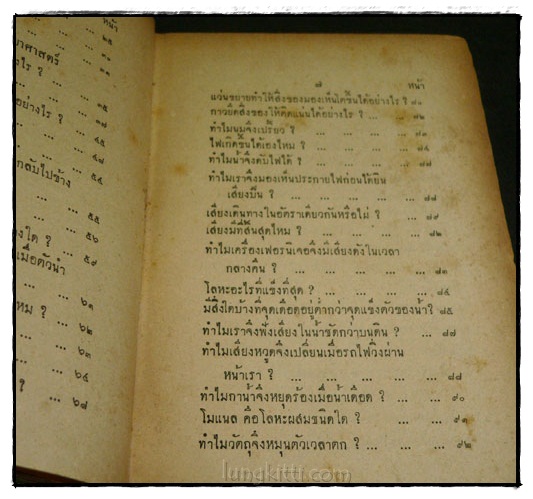 หน้า
... ... ... ๒๕
าศาสตร์
... ... ... ๓๑
งไร ?
... ... ... ๓๕
อย่างไร ?
... ... ... ๔๕
... ... ... ๔๘
กลับไปข้าง
... ... ... ๕๕
... ... ... ๕๖
องใด ? ... ๕๙
เมื่อตัวนำ
... ... ... ๖๑
หม ? ... ๖๒
... ... ... ๖๓
... ... ... ๖๔
... ... ... ๖๘
๗ หน้า
แว่นขยายทำให้สิ่งของมองเห็นโตขึ้นได้อย่างไร ? ๘๑
กาวยึดสิ่งของให้ติดแน่นได้อย่างไร ? ... ... ๘๒
ทำไมนมจึงเปรี้ยว ? ... ... ... ๘๓
ไฟเกิดขึ้นได้เองไหม ? ... ... ... ๘๔
ทำไมน้ำจึงดับไฟได้ ? ... ... ...
ทำไมเราจึงมองเห็นประกายไฟก่อนได้ยิน
เสียงปืน ? ... ... ... ...
เสียงเดินทางในอัตราเดียวกันหรือไม่ ? ...
เสียงมีที่สิ้นสุดไหม ? ... ... ...
ทำไมเครื่องเฟอรนิเจอจึงมีเสียงดังในเวลา
กลางคืน ? ... ... ... ...
โลหะอะไรที่แข็งที่สุด ? ... ... ...
มีสิ่งใดบ้างที่จุดเดือดอยู่ต่ำกว่าจุดแข็งตัวของน้ำ? ๘๕
ทำไมเราจึงฟังเสียงในน้ำชัดกว่าบนดิน ? ... ๘๗
ทำไมเสียงหวูดจึงเปลี่ยนเมื่อรถไฟวิ่งผ่าน
หน้าเรา ? ... ... ... ... ๘๘
ทำไมกาน้ำจึงหยุดร้องเมื่อน้ำเดือด ? ... ๙๐
โมแนล คือโลหะผสมชนิดใด ? ... ... ๙๑
ทำไมวัตถุจึงหมุนตัวเวลาตก ? ... ... ... ๙๒
lungkitti.com